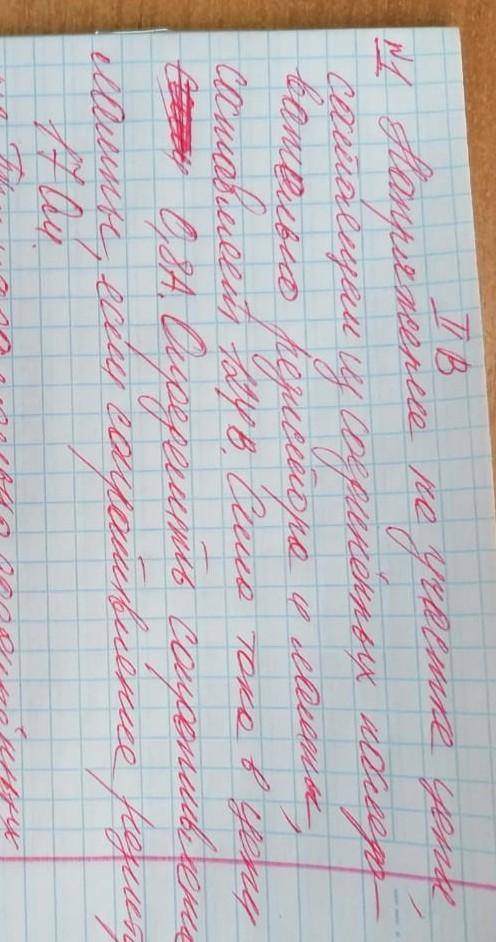 II В
№1 Напряжение на участке цепи,
состоящем из соединённых последо-
вательно резистора и лампы,
составляет 24 В. Сила тока в цепи
0,8А. Определить сопротивление
лампы, если сопротивление резис
17 Ом.